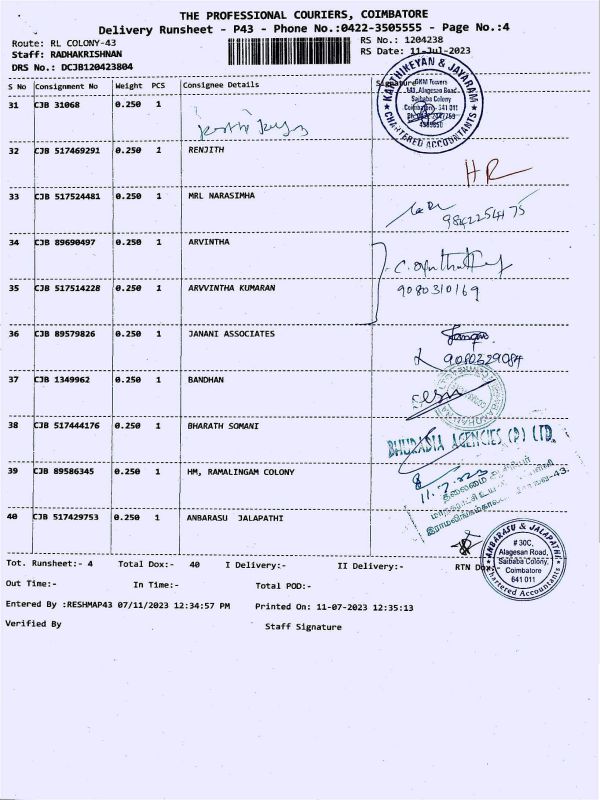 THE PROFESSIONAL COURIERS, COIMBATORE
Delivery Runsheet - P43 - Phone No.:0422-3505555 - Page No.:4
Route: RL COLONY-43
RS No.: 1204238
Staff: RADHAKRISHNAN
RS Date: 11-Jul-2023
DRS No.: DCJB120423804
S No Consignment No Weight PCS Consignee Details Signature
KARTHIKEYAN & JAYARAM
CHARTERED ACCOUNTANTS
Saibaba Colony
31 CJB 31068 0.250 1
32 CJB 517469291 0.250 1 RENJITH
HR
33 CJB 517524481 0.250 1 MRL NARASIMHA
9842254175
34 CJB 89690497 0.250 1 ARVINTHA
35 CJB 517514228 0.250 1 ARVVINTHA KUMARAN
9080310169
36 CJB 89579826 0.250 1 JANANI ASSOCIATES
9080329084
37 CJB 1349962 0.250 1 BANDHAN
38 CJB 517444176 0.250 1 BHARATH SOMANI
BHURADIA AGENCIES (P) LTD.
39 CJB 89586345 0.250 1 HM, RAMALINGAM COLONY
11.7.2023
40 CJB 517429753 0.250 1 ANBARASU JALAPATHI
ANBARASU & JALAPATHI
# 30C,
Alagesan Road,
Saibaba Colony,
Coimbatore
641 011
Chartered Accountants
Tot. Runsheet:- 4 Total Dox:- 40 I Delivery:- II Delivery:- RTN Dox:-
Out Time:- In Time:- Total POD:-
Entered By :RESHMAP43 07/11/2023 12:34:57 PM Printed On: 11-07-2023 12:35:13
Verified By Staff Signature